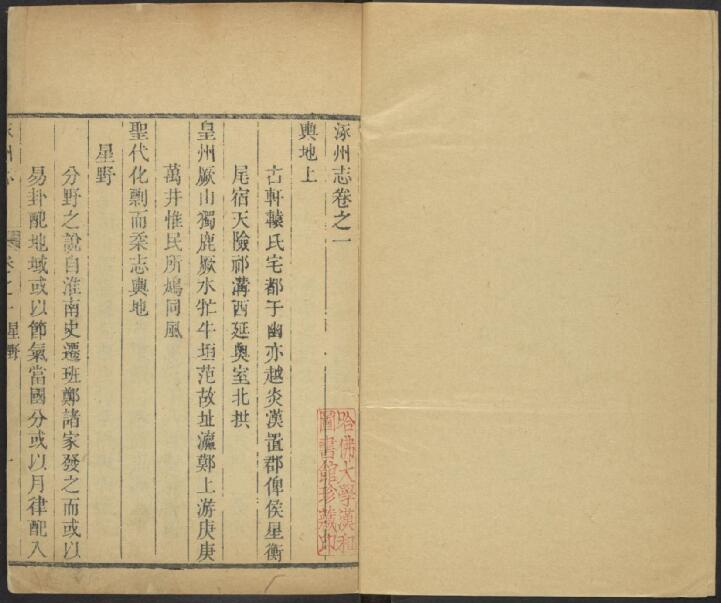 涿州志卷之一
輿地上
古軒轅氏宅都于幽亦越炎漢置郡俾侯星衡
尾宿天險祁溝西延奧室北拱
皇州厥山獨鹿厥水牤牛垣范故址瀛鄚上游庚庚
萬井惟民所鳩同風
聖代化剽而柔志輿地
星野
分野之說自淮南史遷班鄭諸家發之而或以
易卦配地域或以節氣當國分或以月律配入
涿州志
卷之一 星野
一
哈佛大學漢和
圖書館珍藏印